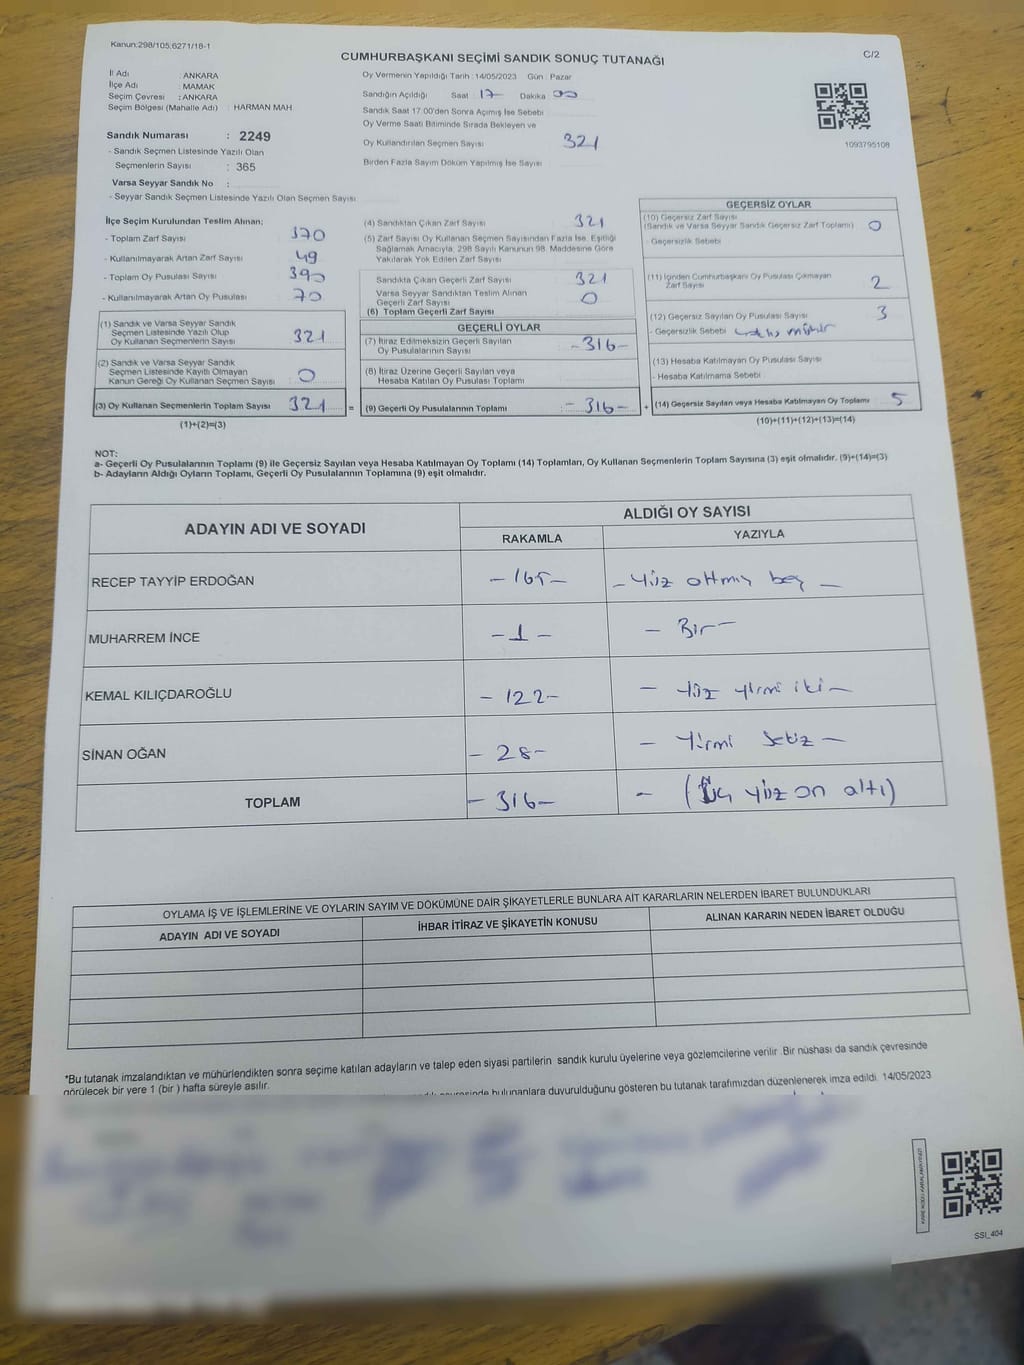 Kanun:298/105,6271/18-1
C/2
CUMHURBAŞKANI SEÇİMİ SANDIK SONUÇ TUTANAĞI
İl Adı : ANKARA
İlçe Adı : MAMAK
Seçim Çevresi : ANKARA
Seçim Bölgesi (Mahalle Adı) : HARMAN MAH
Sandık Numarası : 2249
- Sandık Seçmen Listesinde Yazılı Olan
Seçmenlerin Sayısı : 365
Varsa Seyyar Sandık No :
- Seyyar Sandık Seçmen Listesinde Yazılı Olan Seçmen Sayısı
Oy Vermenin Yapıldığı Tarih : 14/05/2023 Gün : Pazar
Sandığın Açıldığı Saat 17 Dakika 00
Sandık Saat 17:00'den Sonra Açımış İse Sebebi
Oy Verme Saati Bitiminde Sırada Bekleyen ve
Oy Kullandırılan Seçmen Sayısı 321
Birden Fazla Sayım Döküm Yapılmış İse Sayısı
1093795108
İlçe Seçim Kurulundan Teslim Alınan:
- Toplam Zarf Sayısı 370
- Kullanılmayarak Artan Zarf Sayısı 49
- Toplam Oy Pusulası Sayısı 390
- Kullanılmayarak Artan Oy Pusulası 70
(1) Sandık ve Varsa Seyyar Sandık
Seçmen Listesinde Yazılı Olup
Oy Kullanan Seçmenlerin Sayısı 321
(2) Sandık ve Varsa Seyyar Sandık
Seçmen Listesinde Kayıtlı Olmayan
Kanun Gereği Oy Kullanan Seçmen Sayısı 0
(3) Oy Kullanan Seçmenlerin Toplam Sayısı 321 =
(1)+(2)=(3)
(4) Sandıktan Çıkan Zarf Sayısı 321
(5) Zarf Sayısı Oy Kullanan Seçmen Sayısından Fazla İse, Eşitliği
Sağlamak Amacıyla, 298 Sayılı Kanunun 98. Maddesine Göre
Yakılarak Yok Edilen Zarf Sayısı
Sandıkta Çıkan Geçerli Zarf Sayısı 321
Varsa Seyyar Sandıktan Teslim Alınan
Geçerli Zarf Sayısı 0
(6) Toplam Geçerli Zarf Sayısı
GEÇERLİ OYLAR
(7) İtiraz Edilmeksizin Geçerli Sayılan
Oy Pusulalarının Sayısı -316-
(8) İtiraz Üzerine Geçerli Sayılan veya
Hesaba Katılan Oy Pusulası Toplamı
(9) Geçerli Oy Pusulalarının Toplamı -316- +
GEÇERSİZ OYLAR
(10) Geçersiz Zarf Sayısı
(Sandık ve Varsa Seyyar Sandık Geçersiz Zarf Toplamı) 0
- Geçersizlik Sebebi
(11) İçinden Cumhurbaşkanı Oy Pusulası Çıkmayan
Zarf Sayısı 2
(12) Geçersiz Sayılan Oy Pusulası Sayısı 3
- Geçersizlik Sebebi
(13) Hesaba Katılmayan Oy Pusulası Sayısı
- Hesaba Katılmama Sebebi
(14) Geçersiz Sayılan veya Hesaba Katılmayan Oy Toplamı 5
(10)+(11)+(12)+(13)=(14)
NOT:
a- Geçerli Oy Pusulalarının Toplamı (9) ile Geçersiz Sayılan veya Hesaba Katılmayan Oy Toplamı (14) Toplamları, Oy Kullanan Seçmenlerin Toplam Sayısına (3) eşit olmalıdır. (9)+(14)=(3)
b- Adayların Aldığı Oyların Toplamı, Geçerli Oy Pusulalarının Toplamına (9) eşit olmalıdır.
ADAYIN ADI VE SOYADI
ALDIĞI OY SAYISI
RAKAMLA YAZIYLA
RECEP TAYYİP ERDOĞAN -165- -Yüz altmış beş-
MUHARREM İNCE -1- -Bir-
KEMAL KILIÇDAROĞLU -122- -Yüz yirmi iki-
SİNAN OĞAN -28- -Yirmi Sekiz-
TOPLAM -316- -(Üç yüz on altı)
OYLAMA İŞ VE İŞLEMLERİNE VE OYLARIN SAYIM VE DÖKÜMÜNE DAİR ŞİKAYETLERLE BUNLARA AİT KARARLARIN NELERDEN İBARET BULUNDUKLARI
ADAYIN ADI VE SOYADI İHBAR İTİRAZ VE ŞİKAYETİN KONUSU ALINAN KARARIN NEDEN İBARET OLDUĞU
*Bu tutanak imzalandıktan ve mühürlendikten sonra seçime katılan adayların ve talep eden siyasi partilerin sandık kurulu üyelerine veya gözlemcilerine verilir. Bir nüshası da sandık çevresinde
görülecek bir yere 1 (bir ) hafta süreyle asılır.
bulunanlara duyurulduğunu gösteren bu tutanak tarafımızdan düzenlenerek imza edildi. 14/05/2023
SSI_404